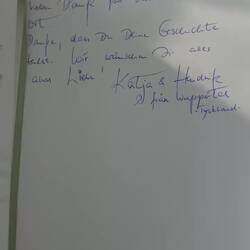 Dank für
Ort
Danke, dass Du Deine Geschichte
Wir wünschen Dir alles
Liebe! Katja & Hendrik
från Wuppertal
Tyskland.